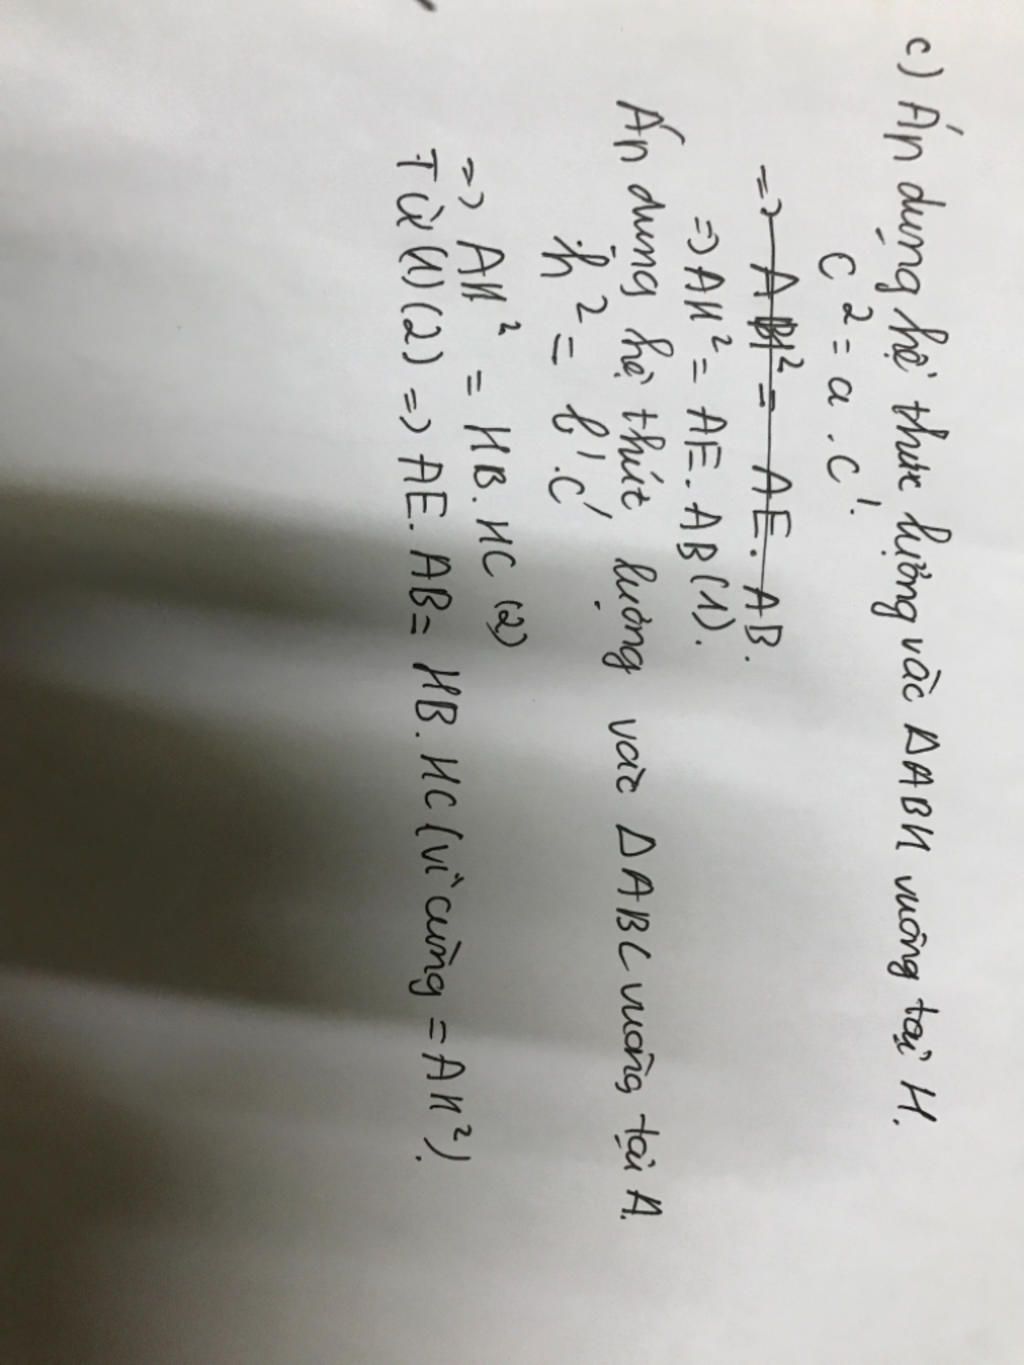 c) Áp dụng hệ thức lượng vào ΔABH vuông tại H.
c² = a.c'.
=> AH² = AE. AB.
=> AH² = AE. AB (1).
Áp dụng hệ thức lượng vào ΔABC vuông tại A.
h² = b'.c'
=> AH² = HB. HC (2)
Từ (1) (2) => AE. AB = HB. HC (vì cùng = AH²).